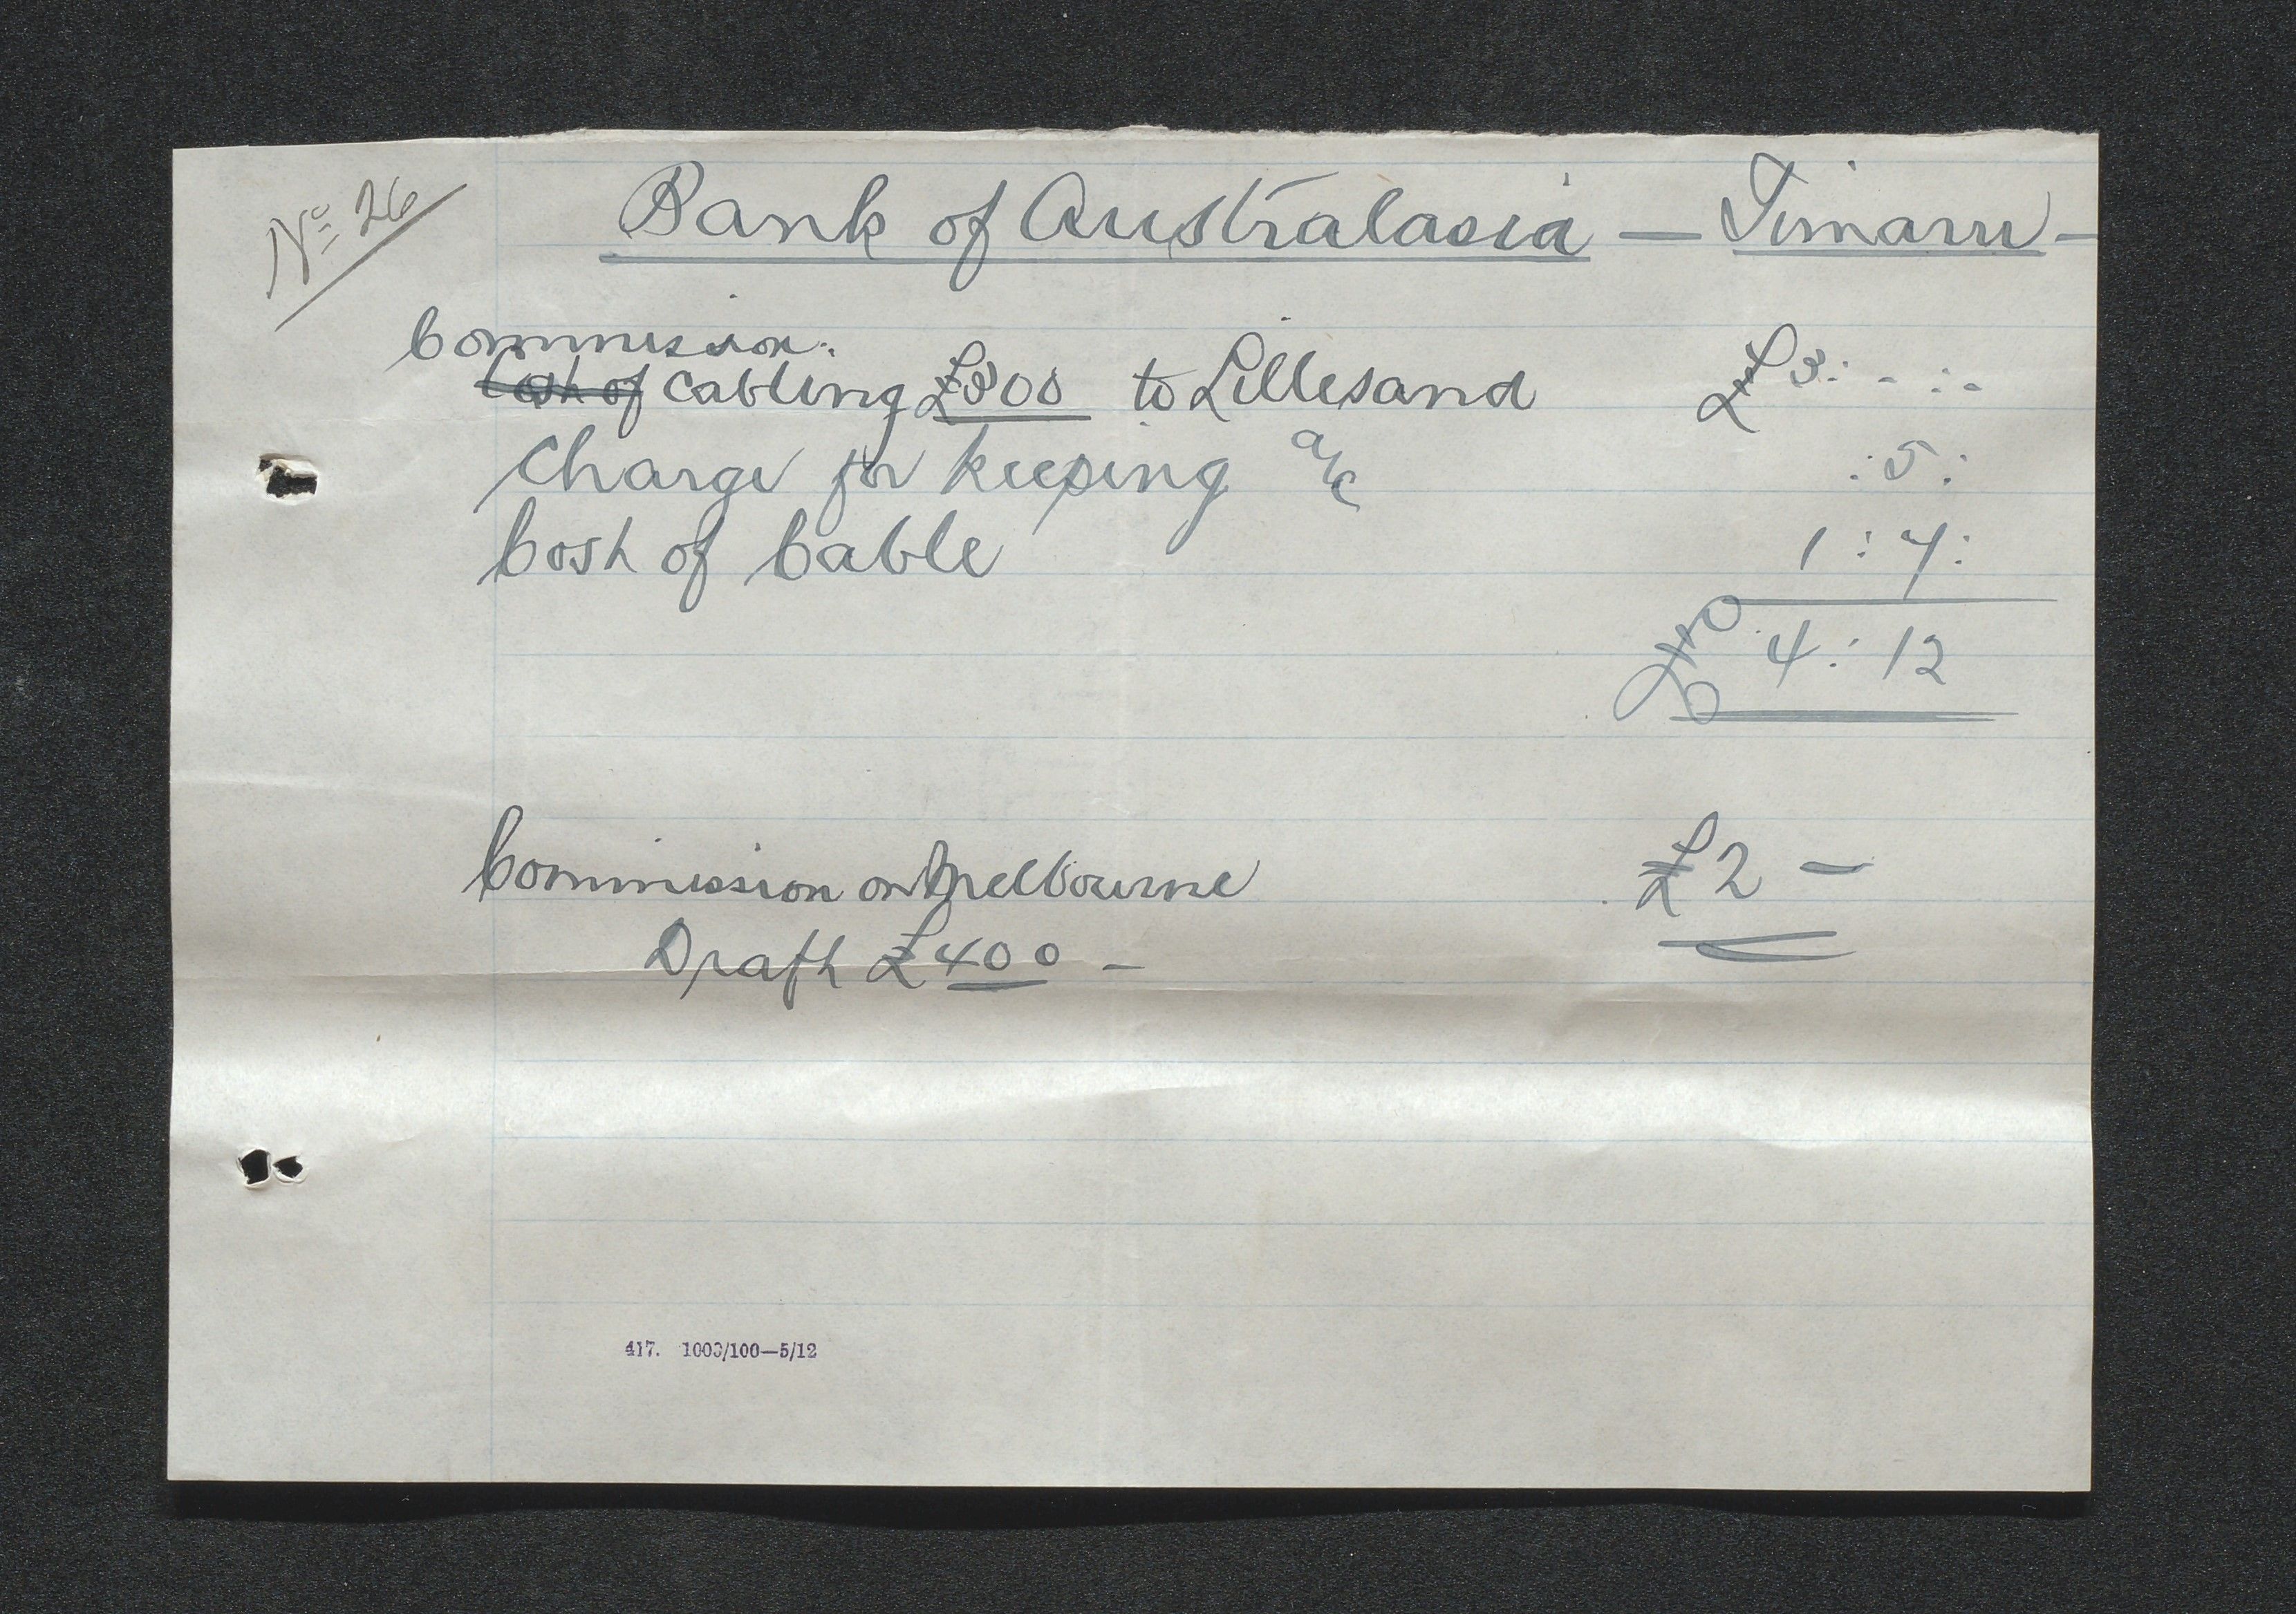 No 26
Bank of Australasia — Timaru —
Commission.
Cost of cabling £300 to Lillesand £3: - : -
Charge for keeping a/c : 5 :
Cost of Cable 1 : 7 :
£ 4 : 12
Commission on Melbourne £2 —
Draft £400 —
417. 1000/100—5/12